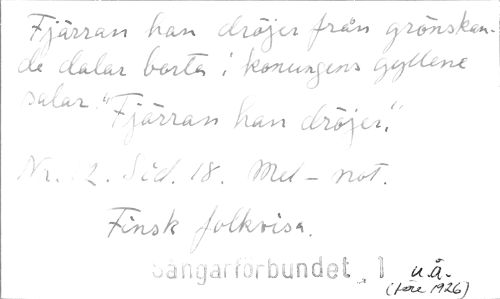 Fjärran han dröjer från grönskan-
de dalar borta i konungens gyllene
salar. "Fjärran han dröjer."
Nr. 2. Sid. 18. Mel-not.
Finsk folkvisa.
Sångarförbundet 1 u.å.
(före 1926)